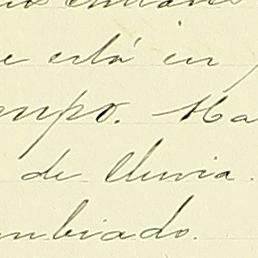 e está in
mpo. Ha
de lluvia.
mbiado.